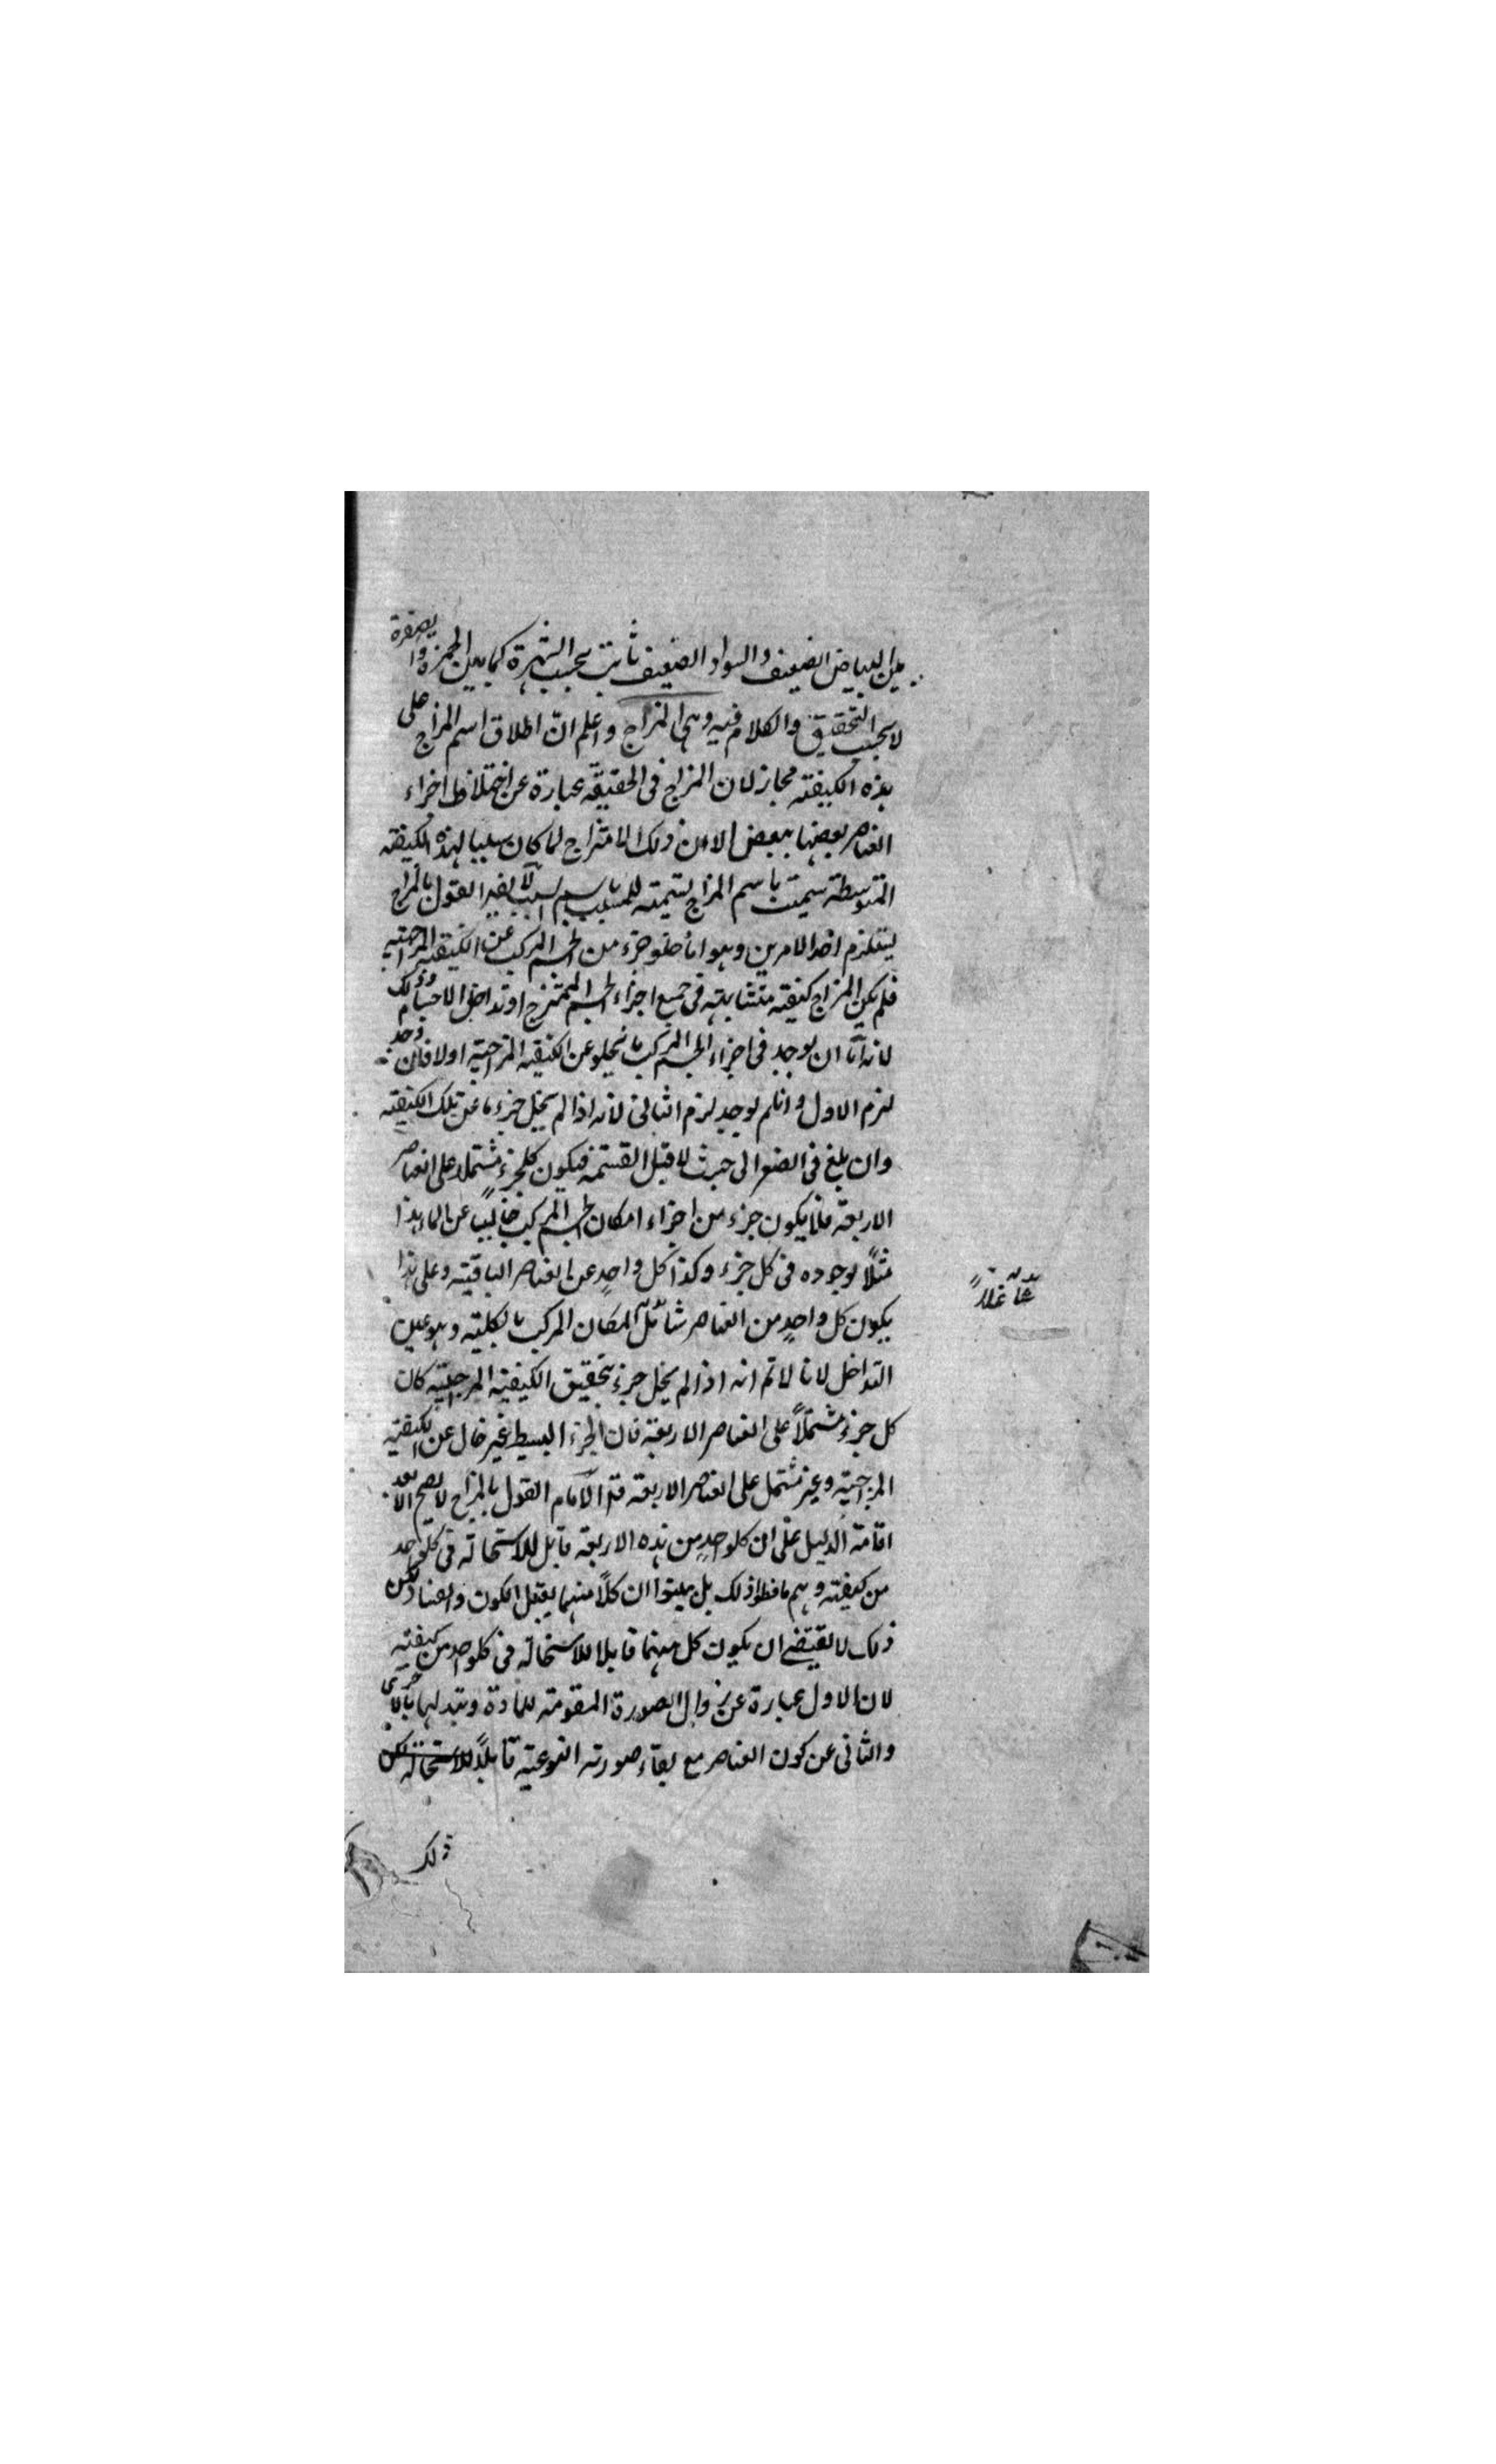 بين البياض الضعيف والسواد الضعيف ثابت بحسب الشهرة كما بين الحمرة والصفرة
لا بحسب التحقيق والكلام فيه وهى المزاج واعلم ان اطلاق اسم المزاج على
هذه الكيفية مجاز لان المزاج فى الحقيقة عبارة عن اختلاط اجزاء
العناصر بعضها ببعض الا ان ذلك الامتزاج لما كان سببا لهذه الكيفية
المتوسطة سميت باسم المزاج تسمية للمسبب باسم السبب لا يقال القول بالمزاج
يستلزم احد الامرين وهو اما خلو جزء من الجسم المركب عن الكيفية المزاجية
فلم يكن المزاج كيفية متشابهة فى جميع اجزاء الجسم الممتزج او تداخل الاجسام وذلك
لانه اما ان يوجد فى اجزاء الجسم المركب ما يخلو عن الكيفية المزاجية اولا فان وجد
لزم الاول وان لم يوجد لزم الثانى لانه اذا لم يخل جزء ما عن تلك الكيفية
وان بلغ فى الصغر الى حيث لا قبل القسمة فيكون كلجزء مشتملا على العناصر
الاربعة فلا يكون جزء من اجزاء امكان الجسم المركب خاليا عن الماء هذا
مثلاً لوجوده فى كل جزء وكذا كل واحدٍ عن العناصر الباقية وعلى هذا
يكون كل واحدٍ من العناصر شاغل المكان المركب بالكلية وهو عين
التداخل لانا لا تم انه اذا لم يخل جزء بتحقيق الكيفية المزاجية كان
كل جزء مشتملاً على العناصر الاربعة فان الجزء البسيط غير خال عن الكيفية
المزاجية وغير مشتمل على العناصر الاربعة قال الامام القول بالمزاج لا يصح الا بعد
اقامة الدليل على ان كلواحدٍ من هذه الاربعة قابل للاستحالة فى كلواحد
من كيفيته وهم ما فعلوا ذلك بل بينوا ان كلاً منهما يقبل الكون والفساد لكن
ذلك لا يقتضى ان يكون كل منهما قابلا للاستحالة فى كلواحد من كيفيته
لان الاول عبارة عن زوال الصورة المقومة للمادة وتبدلها بالاخرى
والثانى عن كون العناصر مع بقاء صورته النوعية قابلاً للاستحالة لكن
ذلك